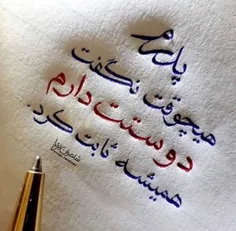 پدرم
هیچوقت نگفت
دوستت دارم
همیشه ثابت کرد.